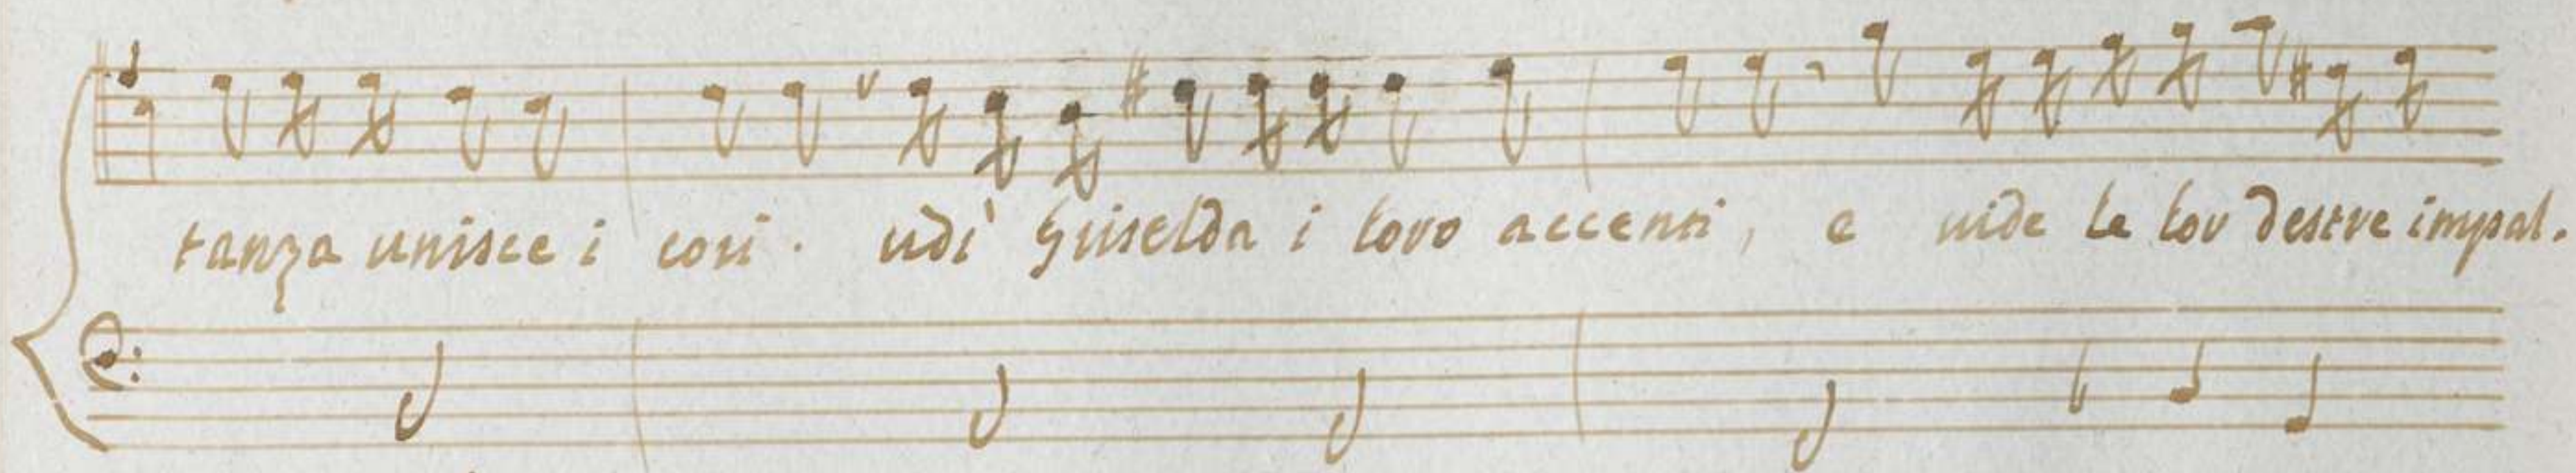 tanza unisce i cori. udì Griselda i loro accenti, e uide le lor destre impal.